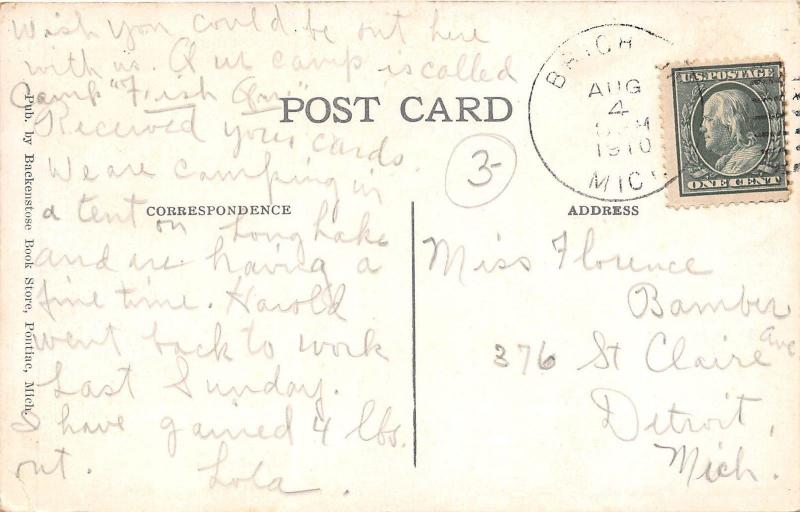 Wish you could be out here
with us. Our camp is called
Camp "Fish Inn"
Received your cards.
We are camping in
a tent on Long Lake
and are having a
fine time. Harold
went back to work
Last Sunday.
I have gained 4 lbs.
out. Lola.
Pub. by Backenstose Book Store, Pontiac, Mich.
POST CARD
3-
CORRESPONDENCE
ADDRESS
AUG
4
1910
MICH
U.S. POSTAGE
ONE CENT
Miss Florence
Bamber
376 St Claire Ave
Detroit,
Mich.